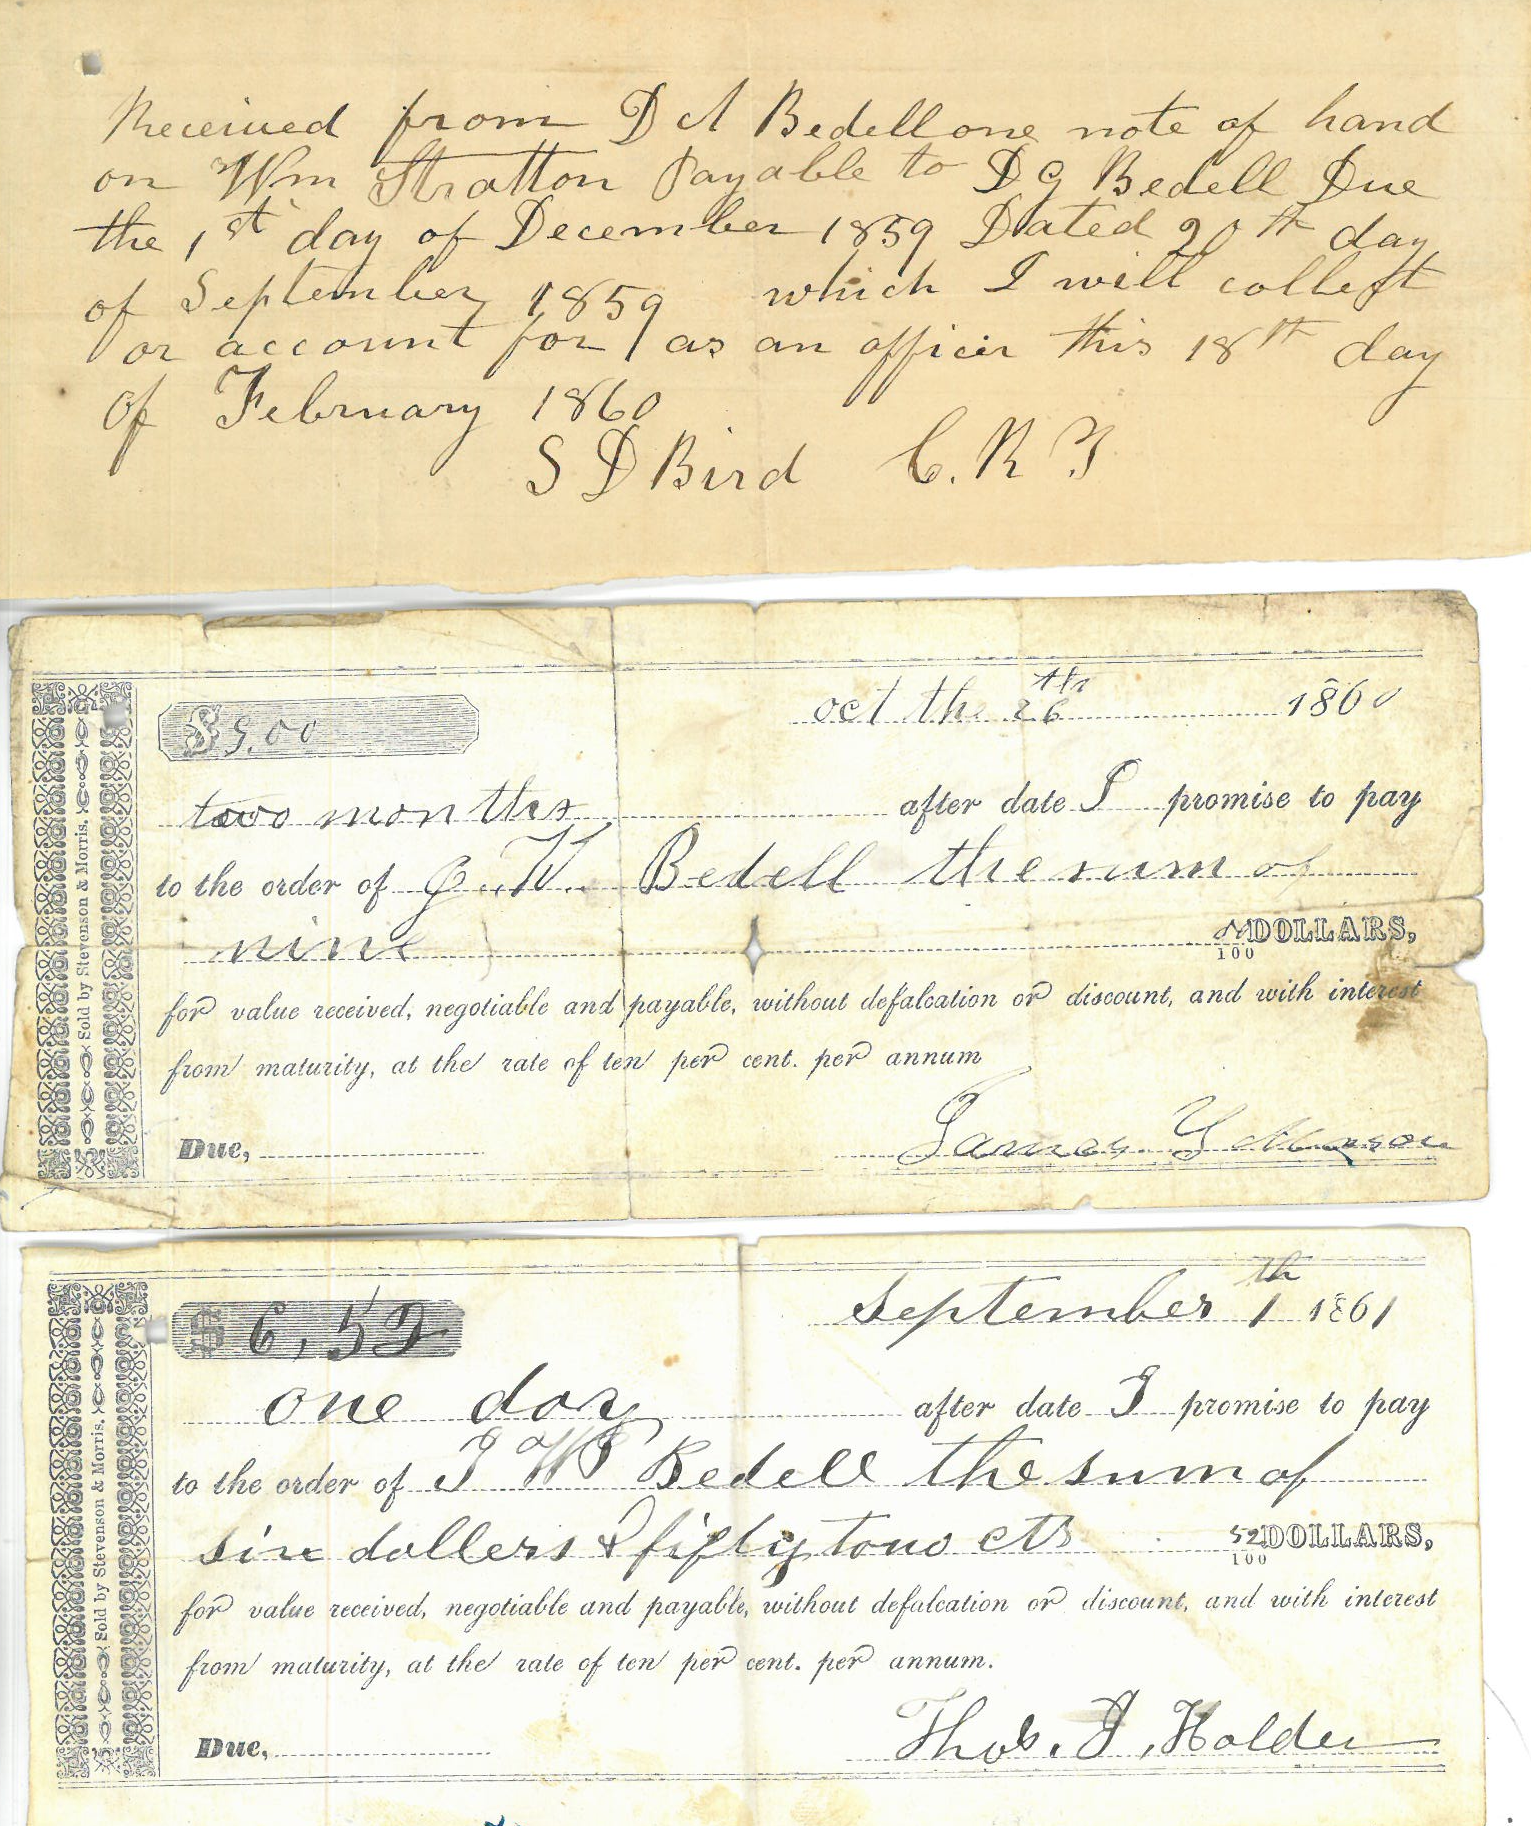 Received from D A Bedell one note of hand
on Wm Stratton Payable to D G Bedell Due
the 1st day of December 1859 Dated 20th day
of September 1859 which I will collect
or account for as an officer this 18th day
of February 1860
S D Bird C. R T
Sold by Stevenson & Morris.
$9.00
oct the 26th 1860
two months after date I promise to pay
to the order of J. W. Bedell the sum of
nine DOLLARS,
100
for value received, negotiable and payable, without defalcation or discount, and with interest
from maturity, at the rate of ten per cent. per annum
Due,
James
Sold by Stevenson & Morris.
$6,52
September 1th 1861
one day after date I promise to pay
to the order of J W Bedell the sum of
six dollers & fifty touo cts 52 DOLLARS,
100
for value received, negotiable and payable, without defalcation or discount, and with interest
from maturity, at the rate of ten per cent. per annum.
Due,
Thos. J. Holder